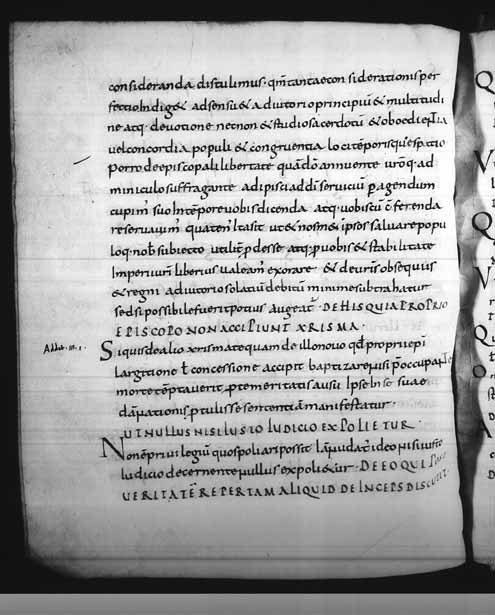 consideranda distulimus. qm̅ tanta et considerationis per
fectio Indiget adsensu et adiutorio principiu̅ et multitudi
ne atq. deuotione necnon et studio sacerdotu̅ et oboedientia
uel concordia populi et congruentia loci temporisque spatio
Porro de episcopali libertate quando̅ annuente
miniculo suffragante adipisci addi̅ seruiciu̅ p agendum
cupim̅ suo In te̅pore uobis dicenda atq. uobiscu̅ c̅ferenda
reseruauim̅ quaten̅ et nos met ipsos saluare popu
loq. nob̅ subiecto utilit̅ p desse atq. p uobis et stabilitate
Imperii ur̅i liberius ualeam̅ exorare et deuris obsequiis
et regni adiutorio solatiu̅ debitu̅ minime subtrahatur
sed si possibile fuerit potius augeat̅. DE HIS QUIA PROPRIO
EPISCOPO NON ACCIPIUNT XRISMA.
Addit. III.
Siquis de alio xrismate quam de illo nouo qd̅ proprii ep̅i
largitione ł concessione accipit baptizare nisi p̅occupante
morte te̅ptauerit p temeritatis ausu Ipse In se suae
da̅pnationis p tulisse sententia̅ manifestatur.
UT NULLUS NISI LUSIO IUDICIO EXPOLIETUR.
Non e̅ priuilegiu̅ quo spoliari possit Ia̅ nudat̅ ideo nisi iusto
Iudicio decernente nullus expolietur. DE EO QUI POST
UERITATE̅ REPERTAM ALIQUID DEINCEPS DISCUTIT.